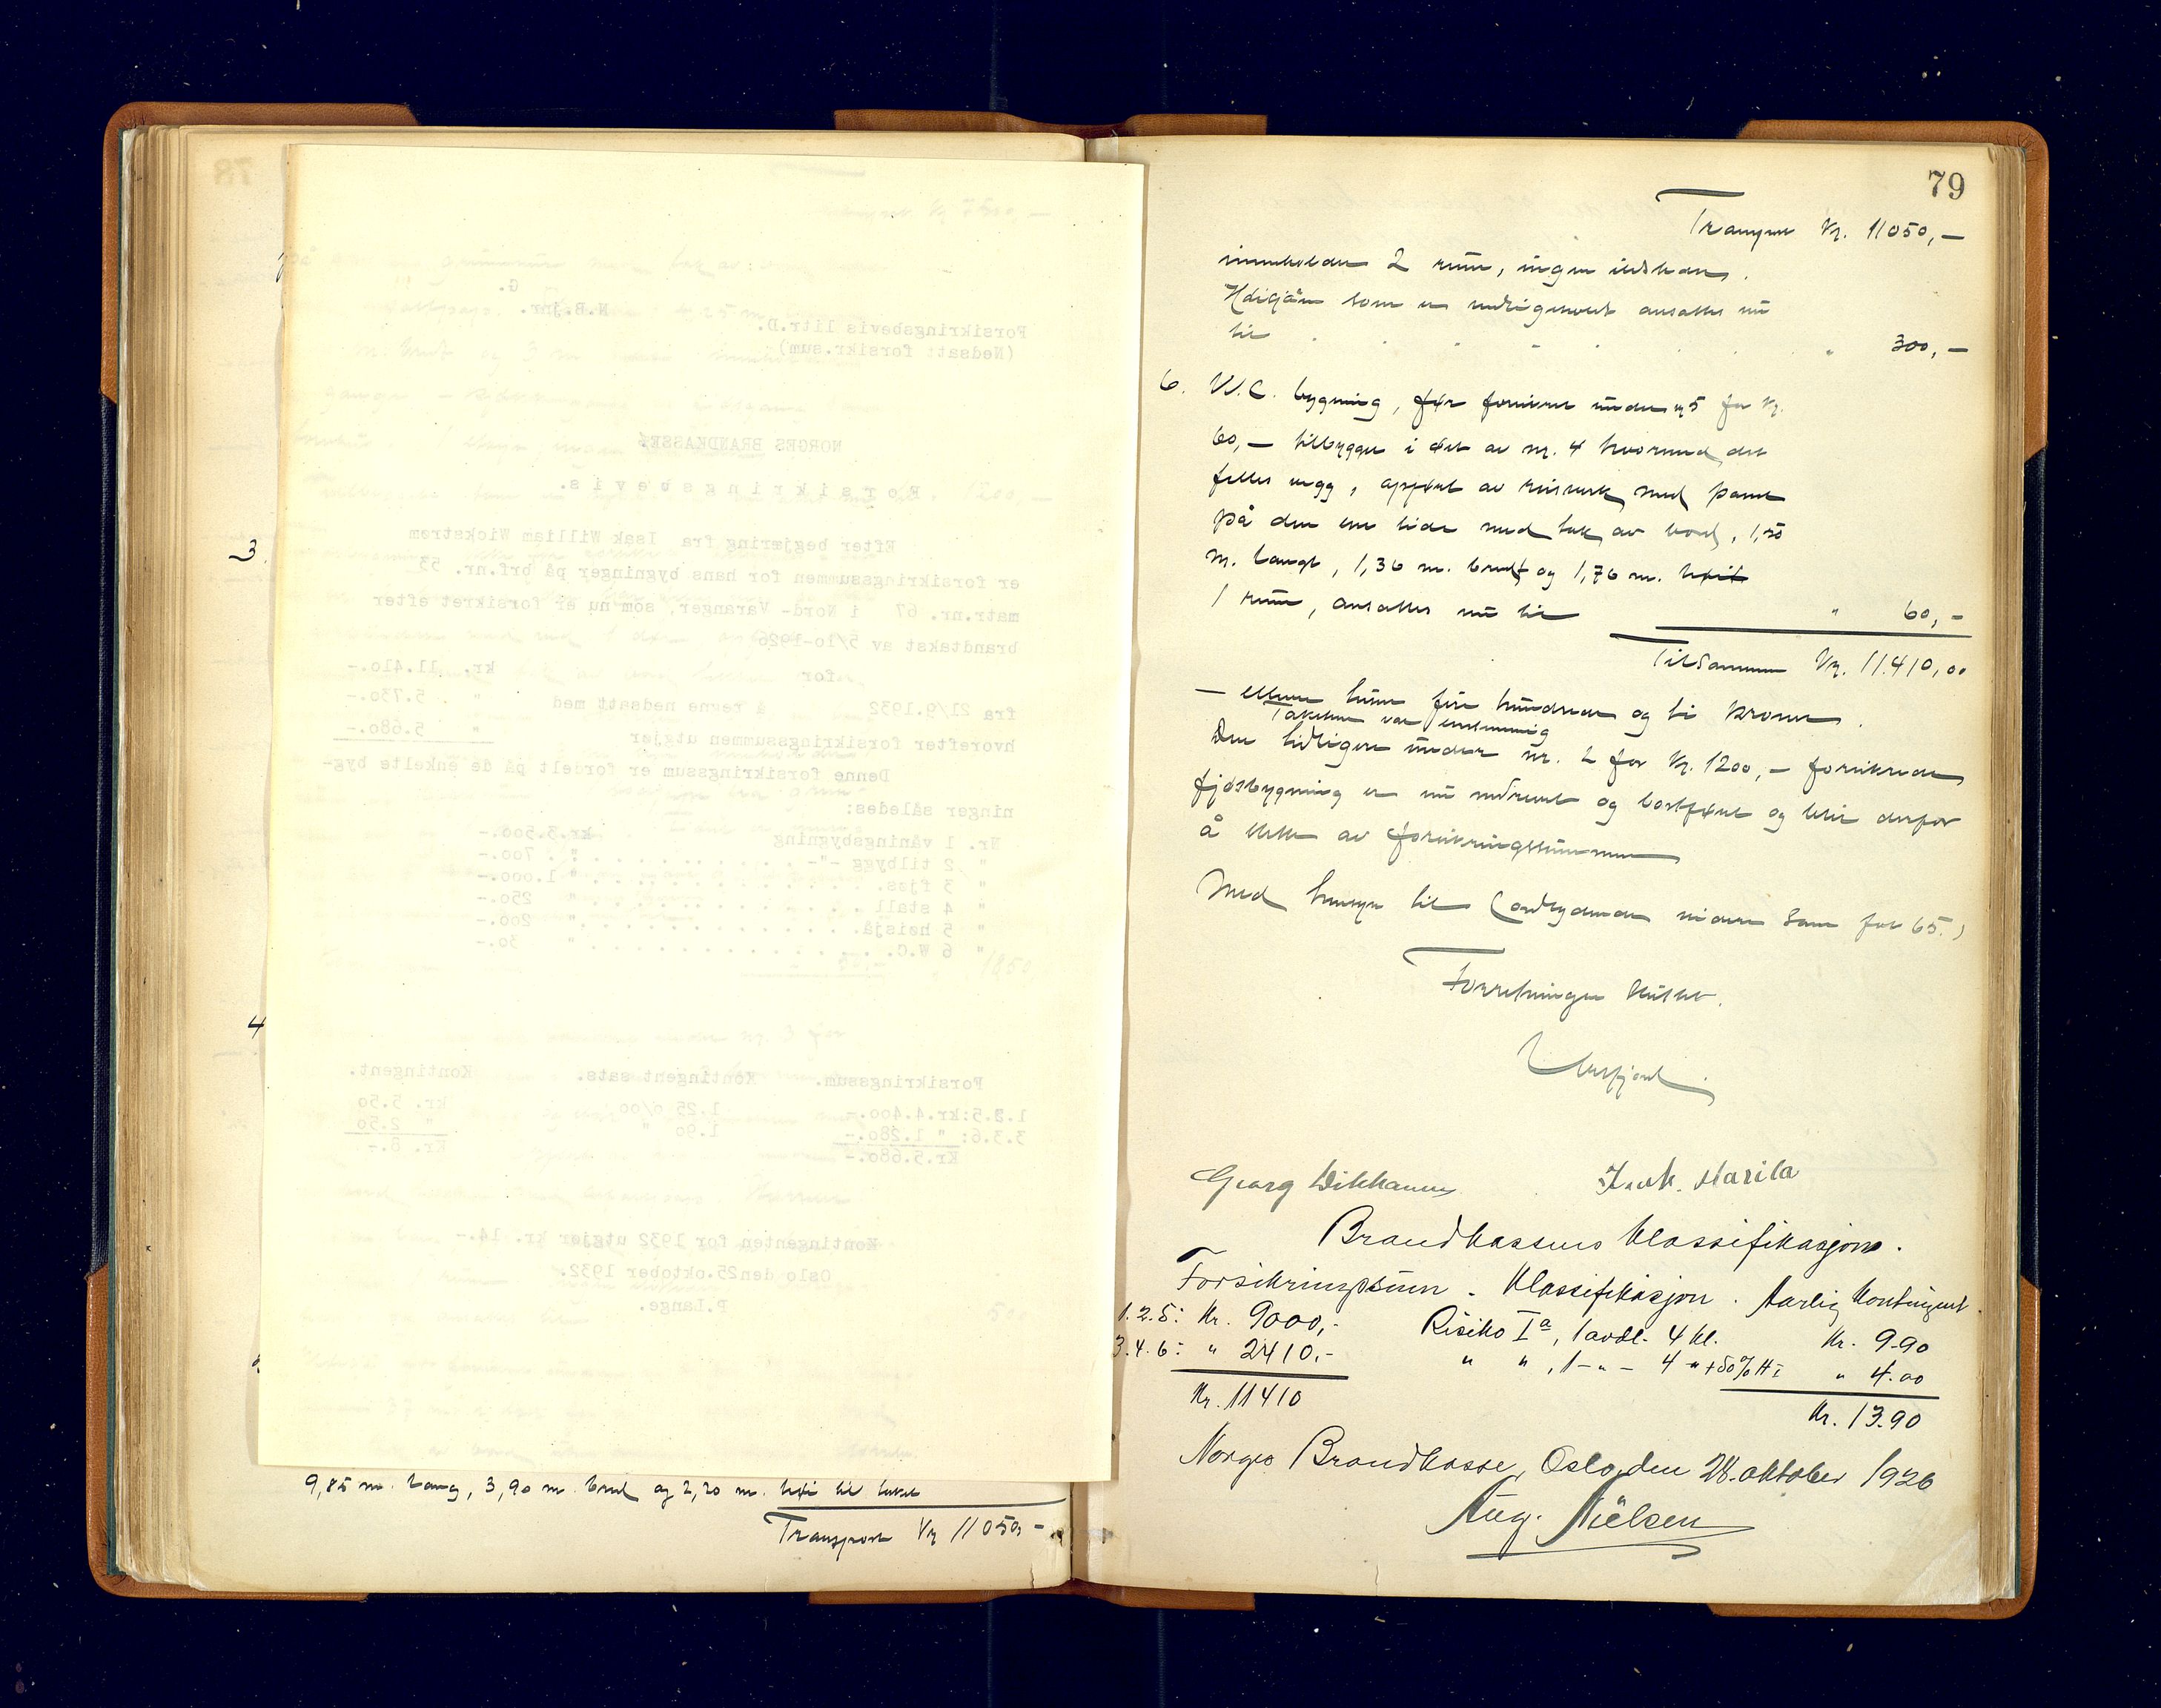 78
3.
4
G.
N.B.jnr.
Forsikringsbevis litr.D.
(Nedsat: forsikr.sum)
NORGES BRANDKASSE
Forsikringsbevis.
Efter begjæring fra Isak William Wickstrøm
er forsikringssummen for hans bygninger på brf.nr. 53
matr.nr. 67 i Nord-Varanger, som nu er forsikret efter
brandtakst av 5/10-1926
for kr. 11.410.-
fra 21/9.1932 å regne nedsatt med " 5.730.-
hvorefter forsikringssummen utgjør " 5.680.-
Denne forsikringssum er fordelt på de enkelte byg-
ninger således:
Nr. 1 våningsbygning kr.3.500.-
" 2 tilbygg -"- " 700.-
" 3 fjøs. " 1.000.-
" 4 stall " 250.-
" 5 høisjå. " 200.-
" 6 W.C. " 30.-
Forsikringssum. Kontingent sats. Kontingent.
1.2.5:kr.4.400.- 1.25 o/oo kr. 5.50
3.3.6: " 1.280.- 1.90 " " 2.50
Kr.5.680.- Kr. 8.-
Kontingenten for 1932 utgjør kr. 14.-
Oslo den 25.oktober 1932.
P.Lange.
9,85 m. lang, 3,90 m. bred og 2,20 m. høi til taket
Transport Kr 11050,-
79
Transport Kr. 11050,-
inneholder 2 rum, ingen ildsteder.
Høisjåen som er ansattes nu
til " 300,-
6. W.C. bygning, før forsikret under nr 5 for Kr.
60,- tilbygget i øst av nr. 4 hvormed det
felles vegg, opført av reisverk med panel
på den ene side med tak av bord, 1,50
m. langt, 1,36 m. bredt og 1,76 m. høit
1 rum, ansattes nu til " 60,-
Tilsammen Kr. 11.410,00
- elleve tusen fire hundrede og ti kroner.
Taksten var enstemmig
Den tidligere under nr. 2 for Kr. 1200,- forsikrede
fjøsbygning er nu nedrevet og bortført og blir derfor
å slette av forsikringssummen
Med hensyn til (ordlydende videre som fol 65.)
Forretningen sluttet.
Georg Wikhammer Isak. Marila
Brandkassens klassifikasjon.
Forsikringssum. Klassifikasjon. Aarlig kontingent.
1.2.5: Kr. 9000,- Risiko Iª, 1 avdl. 4 kl. Kr. 9.90
3.4.6: " 2410,- " " , 1 - " - 4 " + 50% H I " 4.00
Kr. 11410 Kr. 13.90
Norges Brandkasse, Oslo, den 28. oktober 1926
Aug. Nielsen